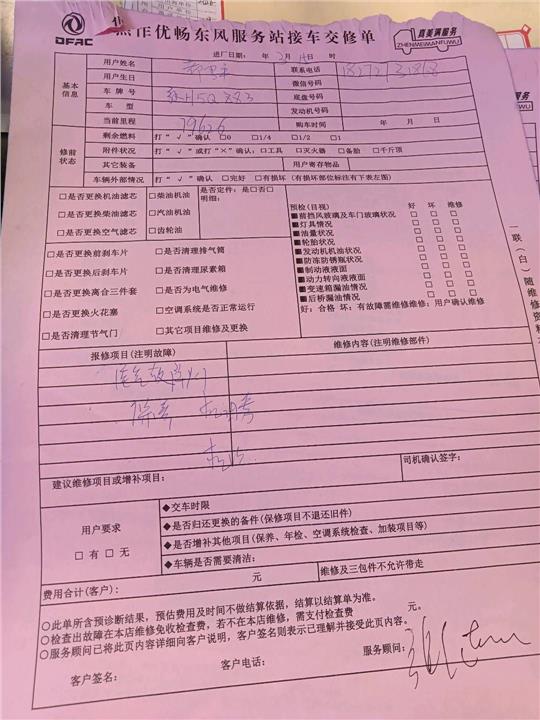 DFAC
焦作优畅东风服务站接车交修单
真美满服务
ZHENMEIMANFUWU
进厂日期: 年 2月 日 时
基本信息
用户姓名 联系电话
用户生日 微信号码
车牌号 底盘号码
车型 发动机号码
当前里程 79626 购车时间 年 月 日
修前状态
剩余燃料 打“√”确认 □0 □1/4 □1/2 □1
附件状况 打“√”或打“×”确认:□工具 □灭火器 □备胎 □千斤顶
其它装备 用户寄存物品
车辆外部情况 打“√”确认 □完好 □有损坏(有损坏部位标注有下表左图)
□是否更换机油滤芯 □柴油机油 是否定件:是□否□
□是否更换柴油滤芯 □汽油机油 明细:
□是否更换空气滤芯 □齿轮油
□是否更换前刹车片 □是否清理排气筒
□是否更换后刹车片 □是否清理尿素箱
□是否更换离合三件套 □是否为电气维修
□是否更换火花塞 □空调系统是否正常运行
□是否清理节气门 □其它项目维修及更换
预检(目视) 好 坏 维修
■前挡风玻璃及车门玻璃状况 □ □ □
■灯具情况 □ □ □
■油量状况 □ □ □
■轮胎状况 □ □ □
■发动机机油状况 □ □ □
■防冻防锈瓶状况 □ □ □
■制动液液面 □ □ □
■动力转向液液面 □ □ □
■变速箱漏油情况 □ □ □
■后桥漏油情况 □ □ □
好:合格 坏:有故障需维修维修:用户确认维修
一联(白)随维修资料
报修项目(注明故障) 维修内容(注明维修部件)
建议维修项目或增补项目: 司机确认签字:
用户要求
□有 □无
◆交车时限
◆是否归还更换的备件(保修项目不退还旧件)
◆是否增补其他项目(保养、年检、空调系统检查、加装项目等)
◆车辆是否需要清洁:
费用合计(客户): 元 维修及三包件不允许带走
○此单所含预诊断结果,预估费用及时间不做结算依据,结算以结算单为准。
○检查出故障在本店维修免收检查费,若不在本店维修,需支付检查费 元。
○服务顾问已将此页内容详细向客户说明,客户签名则表示已理解并接受此页内容。
客户签名: 客户电话: 服务顾问: